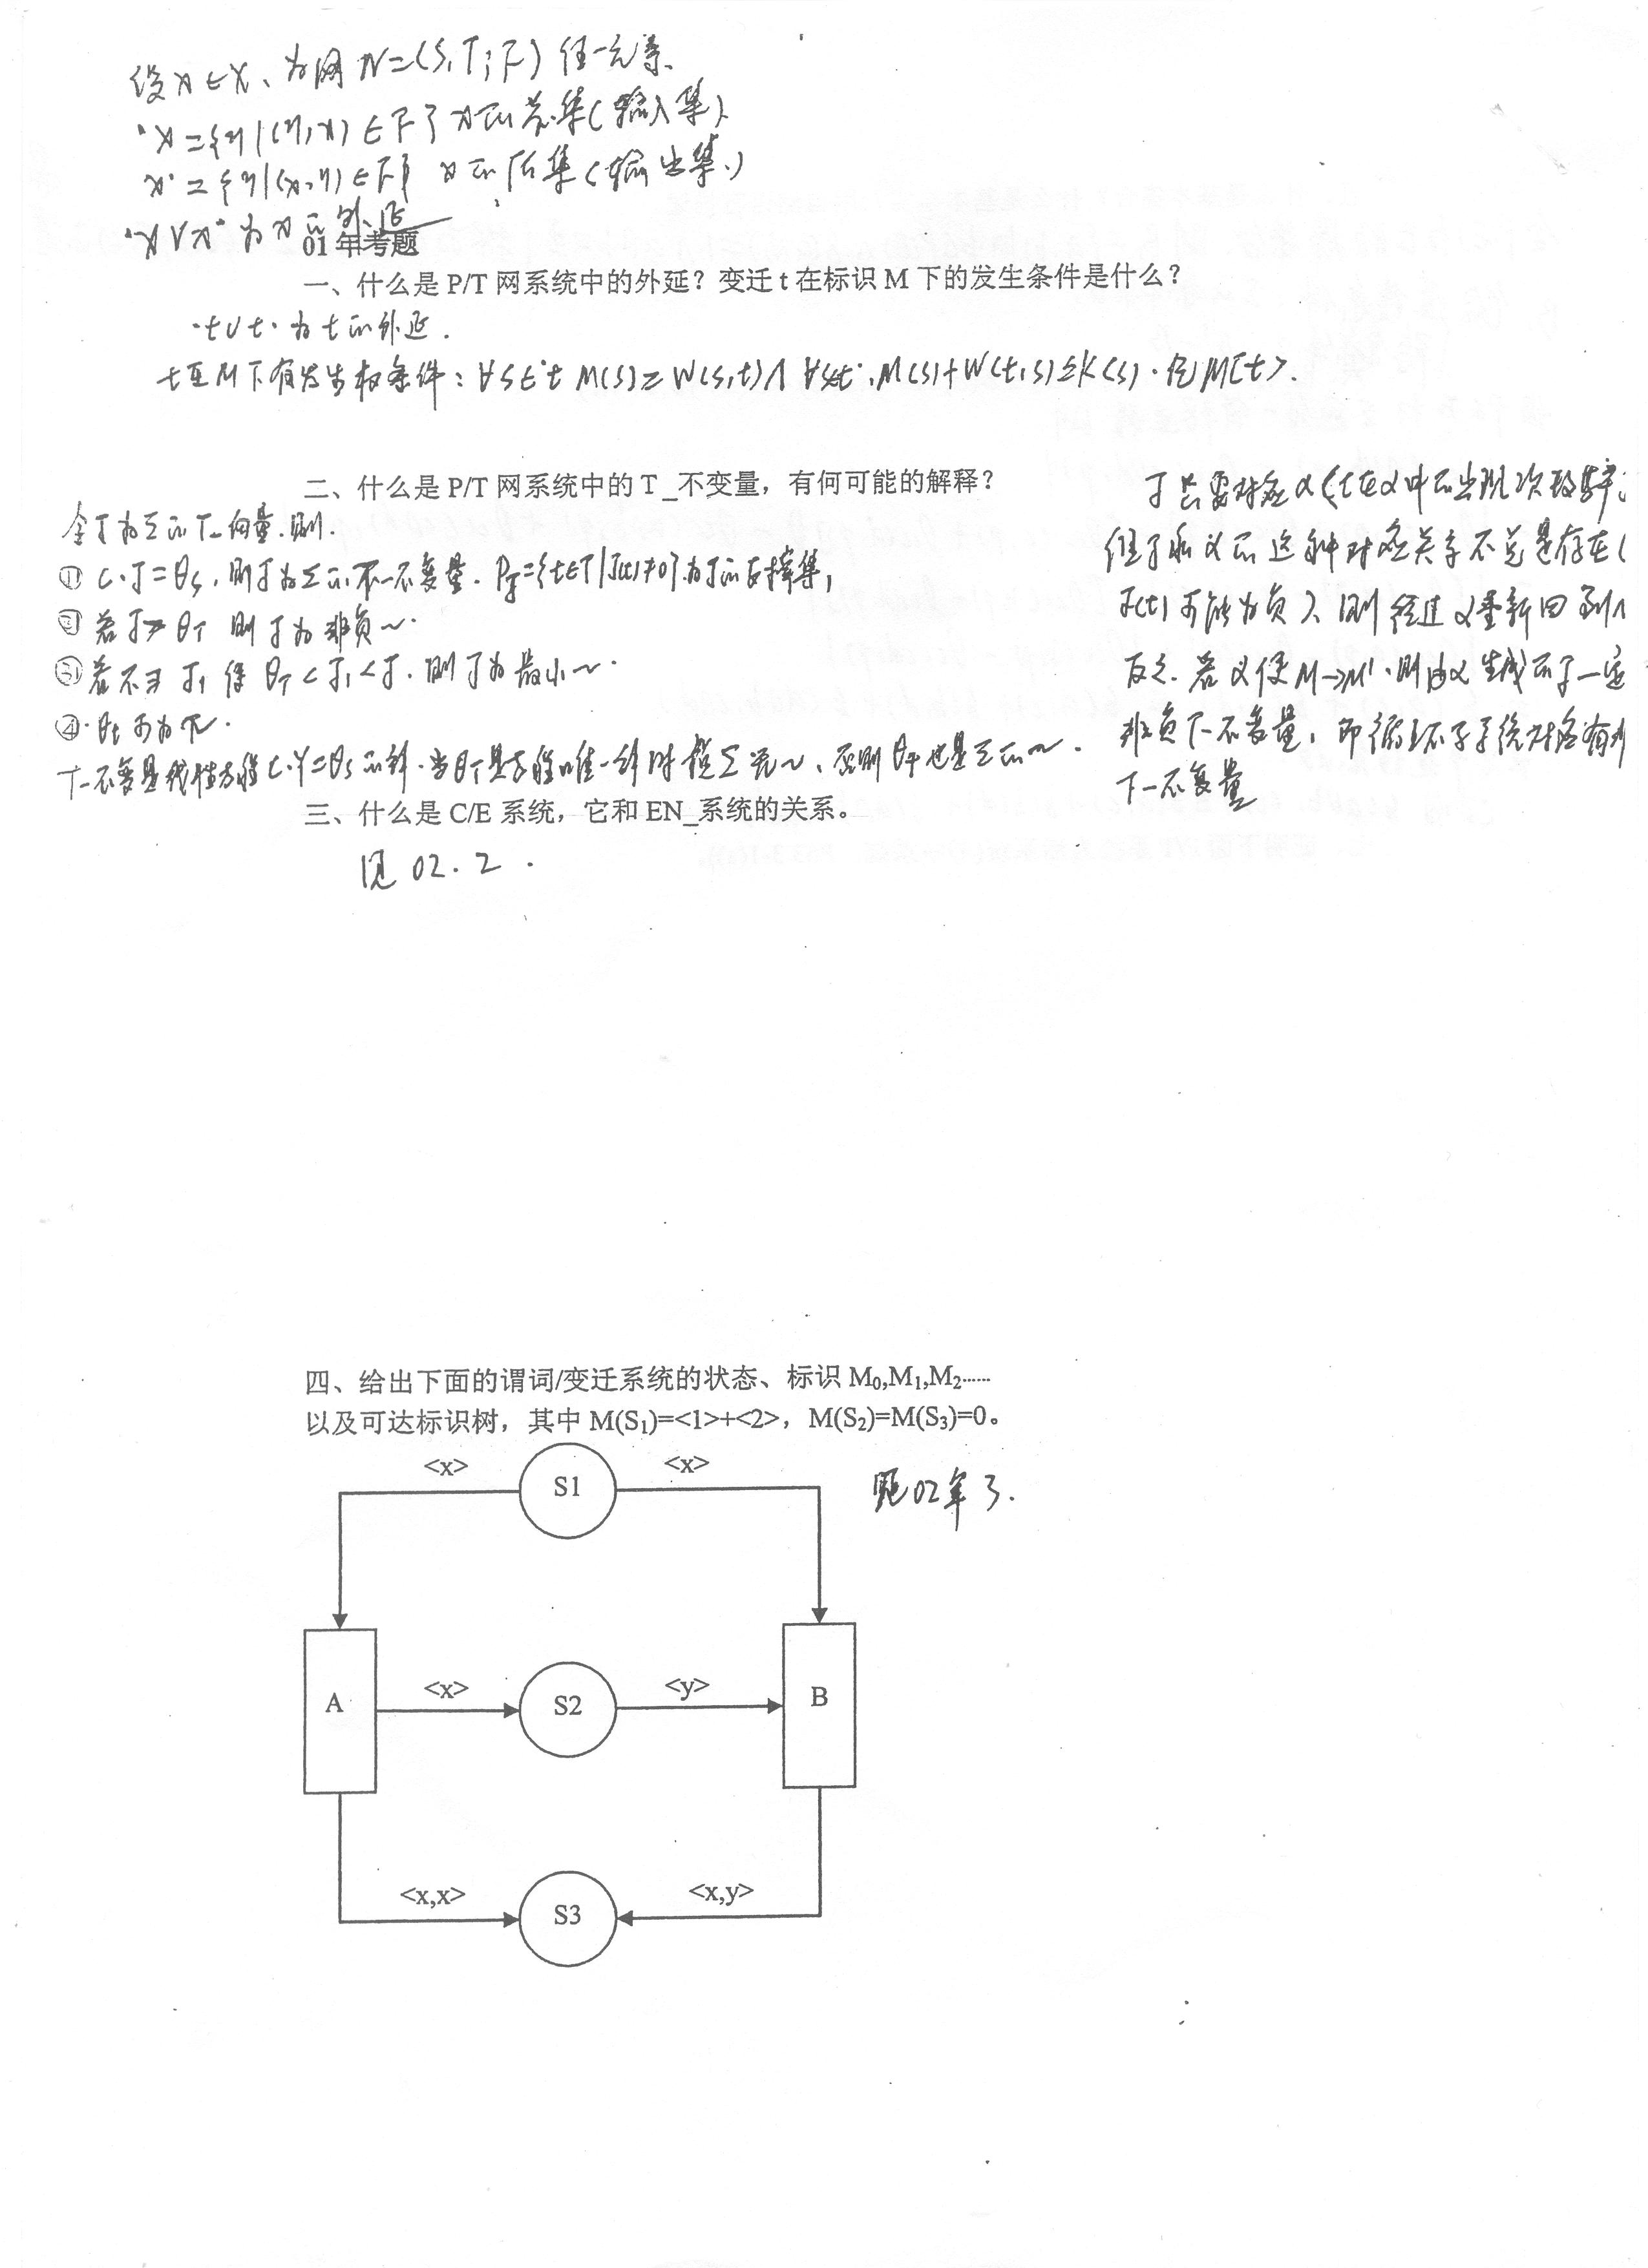 设x∈X、为网N=(S,T;F)任一元素、
·x={y|(y,x)∈F}x的前集(输入集)
x·={y|(x,y)∈F} x的后集(输出集)
·x∪x·为x的外延
01年考题
一、什么是 P/T 网系统中的外延？变迁 t 在标识 M 下的发生条件是什么？
·t∪t·为t的外延.
t在M下有发生权条件：∀s∈·t M(s)≥W(s,t)∧∀s∈t·,M(s)+W(t,s)≤K(s).记M[t>.
二、什么是 P/T 网系统中的 T_不变量，有何可能的解释？
令J为Σ的T_向量.则.
① C·J=θs,则J为Σ的T-不变量. PJ={t∈T|J(t)≠0}为J的支撑集,
② 若J≥θT 则J为非负~.
③ 若不 J1 使θT<J1<J.则J为最小~.
④
T-不变量是线性方程C·Y=θs的解.当θT是方程唯一解时Σ无~、否则也是Σ的~.
J 对应α(t在α中的出现次数
但J和α的这种对应关系不总是存在(
J(t)可能为负)、则经过α重新回到
反之.若α使M→M'.则由α生成的J一定
非负T-不变量,即循环子系统对应有
T-不变量
三、什么是 C/E 系统，它和 EN_系统的关系。
见 02.2.
四、给出下面的谓词/变迁系统的状态、标识 M₀,M₁,M₂······
以及可达标识树，其中 M(S₁)=<1>+<2>，M(S₂)=M(S₃)=0。
<x> S1 <x>
02年3.
A <x> S2 <y> B
<x,x> S3 <x,y>